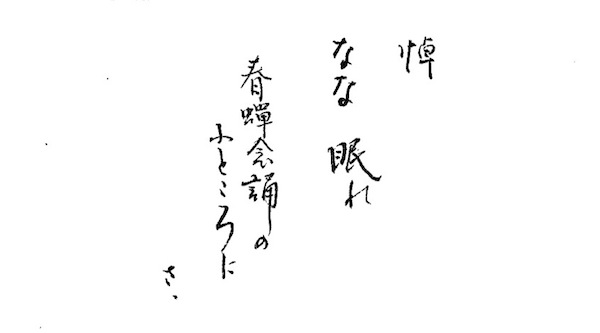 悼
なな 眠れ
春蟬念誦の
ふところに